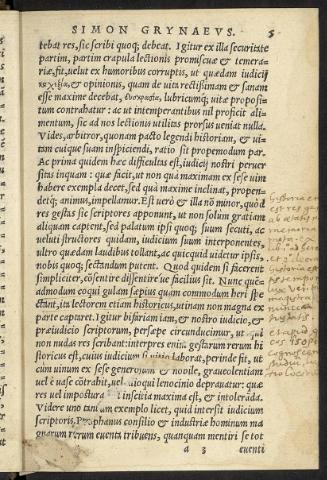 SIMON GRYNAEVS. 5
tebat res, sic scribi quoq; debeat. Igitur ex illa securitate
partim, partim crapula lectionis promiscuæ & temera-
riæ, fit, uelut ex humoribus corruptis, ut quædam iudicij
& opinionis, quam de uita rectissimam & sanam
esse maxime decebat, lubricumq; uitæ proposi-
tum contrahatur: ac ut intemperantibus nil proficit ali-
mentum, sic ad nos lectionis utilitas prorsus ueniat nulla.
Vides, arbitror, quonam pacto legendi historiam, & ui-
tam cuiusque suam inspiciendi, ratio sit propemodum par.
Ac prima quidem hæc difficultas est, iudicij nostri peruer
sitas inquam: quæ facit, ut non quà maximam ex sese uim
habere exempla decet, sed quà maxime inclinat, propen-
detq; animus, impellamur. Est uerò & illa nō minor, quòd
res gestas sic scriptores apponunt, ut non solùm gratiam
aliquam captent, sed palatum ipsi quoq; suum secuti, ac
ueluti structores quidam, iudicium suum interponentes,
ultro quædam laudibus tollant, ac quicquid uidetur ipsis,
nobis quoq; sectandum putent. Quod quidem si facerent
simpliciter, cōsentire dissentireue facilius sit. Nunc que-
admodum coqui gulam sapius quàm commodum heri spe
ctant, ita lectorem etiam historicus, utinam non magna ex
parte captaret. Igitur bifariam iam, & nostro iudicio, &
præiudicio scriptorum, persæpe circunducimur, ut qui
non nudas res scribant: interpres enim gestarum rerum hi
storicus est, cuius iudicium si uitio laborat, perinde fit, ut
cùm uinum ex sese generosum & nobile, graueolentiam
uel è uase cōtrahit, uel alioqui lenocinio deprauatur: quæ
res uel impostura uel inscitia maxima est, & intoleranda.
Videre uno tantum exemplo licet, quid intersit iudicium
scriptoris. Prophanus consilio & industriæ hominum ma
gnarum rerum euenta tribuens, quanquam mentiri se tot
a 3 euenti